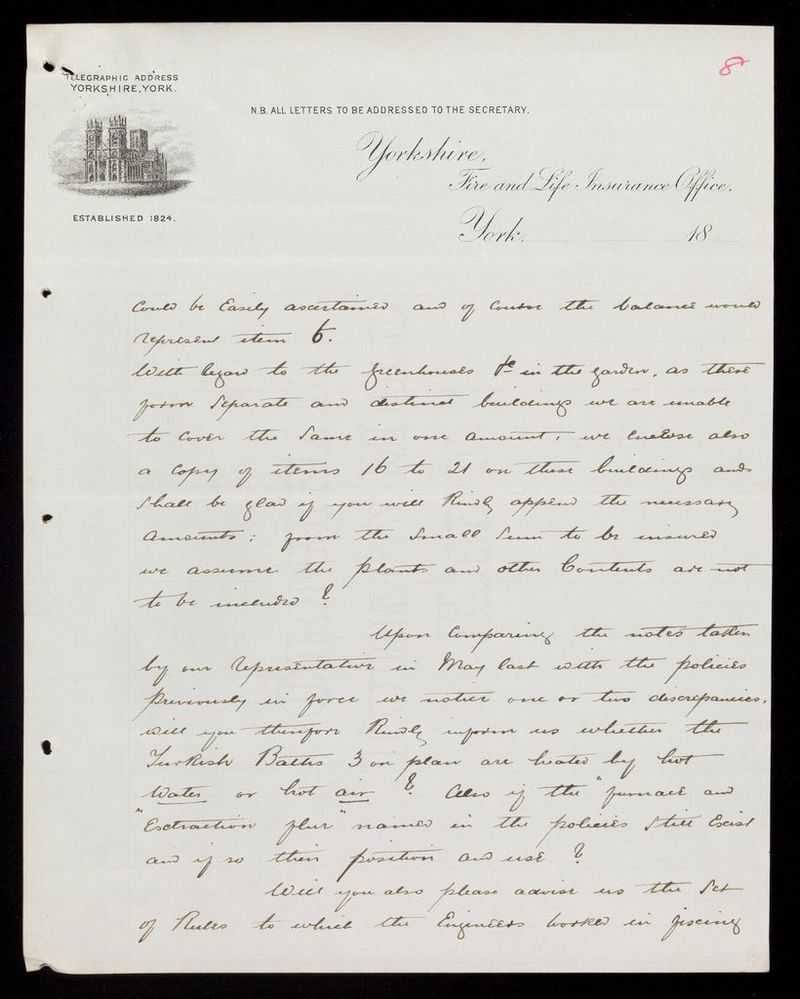 8
TELEGRAPHIC ADDRESS
YORKSHIRE, YORK.
N.B. ALL LETTERS TO BE ADDRESSED TO THE SECRETARY.
Yorkshire,
Fire and Life Insurance Office,
ESTABLISHED 1824.
York, 18
Could be Easily ascertained and of Course the balance would
represent item 6.
With regard to the greenhouses &c in the garden, as these
form Separate and distinct buildings we are unable
to Cover the Same in one amount, we Enclose also
a Copy of items 16 to 21 on these buildings and
Shall be glad if you will Kindly append the necessary
amounts; from the Small Sum to be insured
we assume the plants and other Contents are not
to be included?
Upon Comparing the notes taken
by our representative in May last with the policies
previously in force we notice one or two discrepancies,
will you therefore Kindly inform us whether the
Turkish Baths 3 on plan are heated by hot
Water or hot air? Also if the "furnace and
"Extraction flue" named in the policies Still Exist
and if so their position and use?
Will you also please advise us the Set
of Rules to which the Engineers worked in fixing